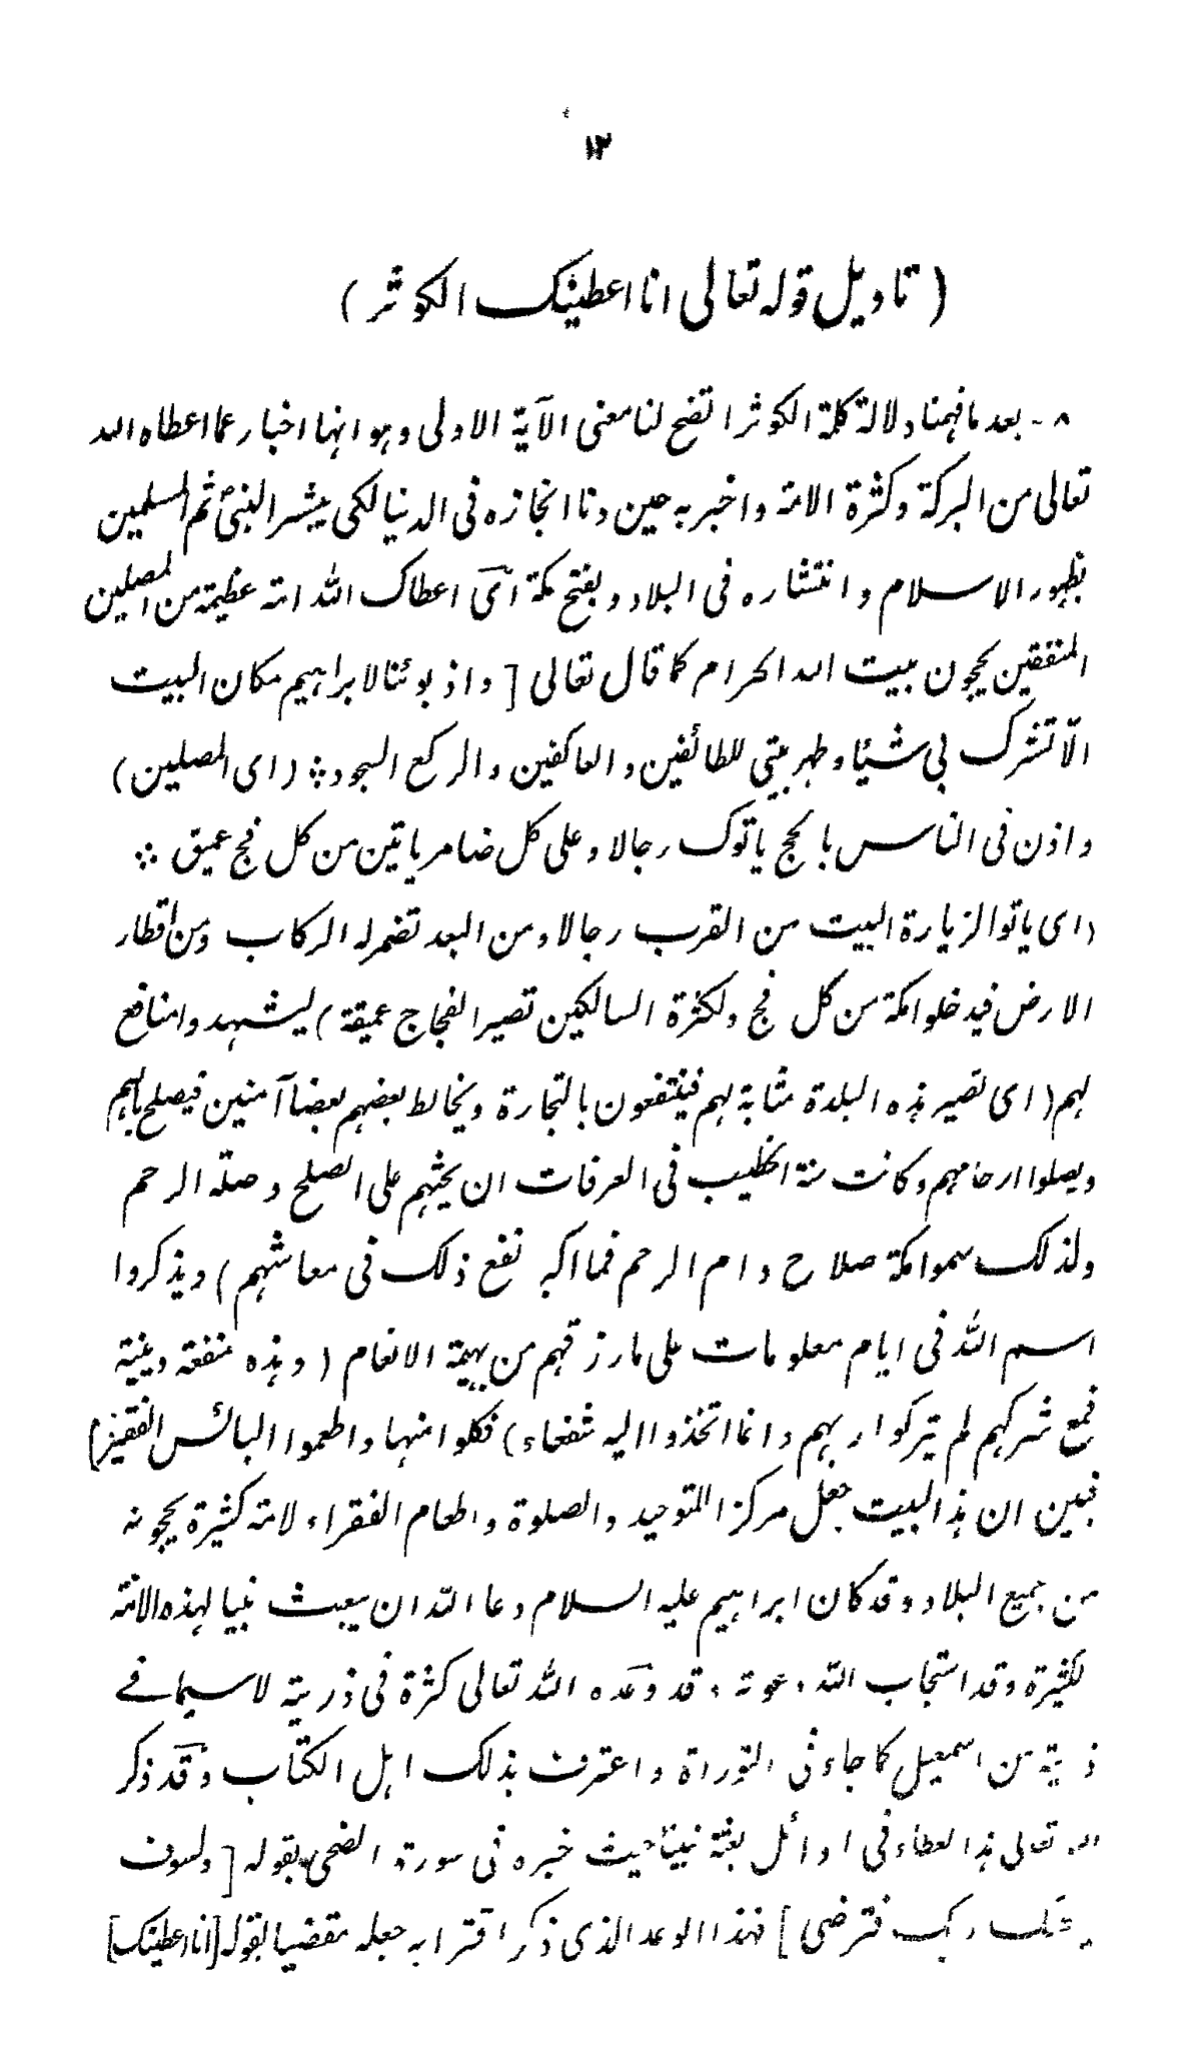 ١٢
(تاویل قوله تعالى انا اعطینک الکوثر)
٨۔ بعد ما فہمنا دلالة کلمة الکوثر اتضح لنا معنى الآیة الاولى وہو انہا اخبار عما اعطاه الله
تعالى من البرکة وکثرة الامة واخبر به حین دنا انجازه فی الدنیا لکی یبشر النبیؐ ثم المسلمین
بظہور الاسلام وانتشاره فی البلاد وبفتح مکة ای اعطاک الله امة عظیمة من المصلین
المنفقین یحجون بیت الله الحرام کما قال تعالى [واذ بوئنا لابراہیم مکان البیت
الّا تشرک بی شیئا وطہر بیتی للطائفین والعاکفین والرکع السجود؞ (ای المصلین)
واذن فی الناس بالحج یاتوک رجالا وعلى کل ضامر یاتین من کل فج عمیق ؞
(ای یاتوا لزیارة البیت من القرب رجالا ومن البعد تضمر له الرکاب ومن اقطار
الارض فیدخلوا مکة من کل فج ولکثرة السالکین تصیر الفجاج عمیقة) لیشہدوا منافع
لہم (ای تصیر ہذه البلدة مثابة لہم فینتفعون بالتجارة ویخالط بعضہم بعضا آمنین فیصلح بالہم
ویصلوا ارحامہم وکانت سنة الخطیب فی العرفات ان یحثہم على الصلح وصلة الرحم
ولذلک سموا مکة صلاح وام الرحم فما اکبر نفع ذلک فی معاشہم) ویذکروا
اسم الله فی ایام معلومات على ما رزقہم من بہیمة الانعام (وہذه منفعة دینیة
فمع شرکہم لم یترکوا ربہم وانما اتخذوا الیه شفعاء) فکلوا منہا واطعموا البائس الفقیر]
فبین ان ہذا البیت جعل مرکزا للتوحید والصلوة واطعام الفقراء لامة کثیرة یحجونه
من جمیع البلاد وقد کان ابراہیم علیه السلام دعا الله ان یبعث نبیا لہذه الامة
الکثیرة وقد استجاب الله دعوته وقد وعده الله تعالى کثرة فی ذریته لا سیما فے
ذریته من اسمعیل کما جاء فی التوراة واعترف بذلک اہل الکتاب وقد ذکر
الله تعالى ہذا العطاء فی اوائل بعثة نبینا حیث خبره فی سورة الضحى بقوله [ولسوف
یعطیک ربک فترضى] فہذا الوعد الذی ذکر اقترابه جعله مقضیا بقوله [انا اعطینک]